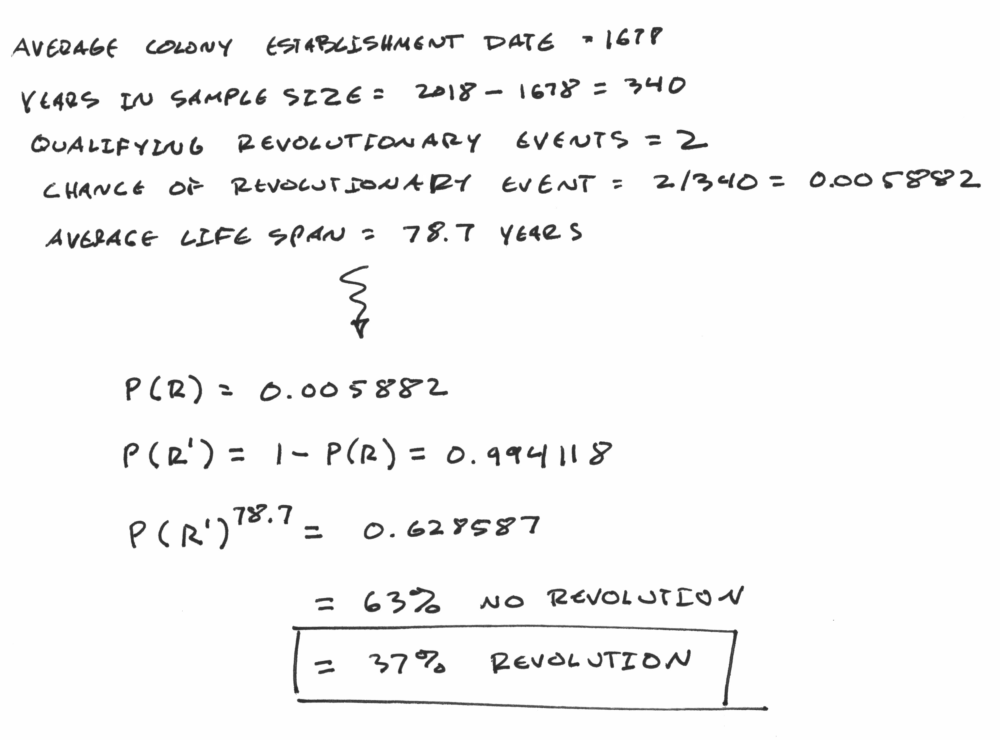 AVERAGE COLONY ESTABLISHMENT DATE = 1678
YEARS IN SAMPLE SIZE = 2018 - 1678 = 340
QUALIFYING REVOLUTIONARY EVENTS = 2
CHANCE OF REVOLUTIONARY EVENT = 2/340 = 0.005882
AVERAGE LIFE SPAN = 78.7 YEARS
P(R) = 0.005882
P(R') = 1 - P(R) = 0.994118
P(R')^78.7 = 0.628587
= 63% NO REVOLUTION
= 37% REVOLUTION